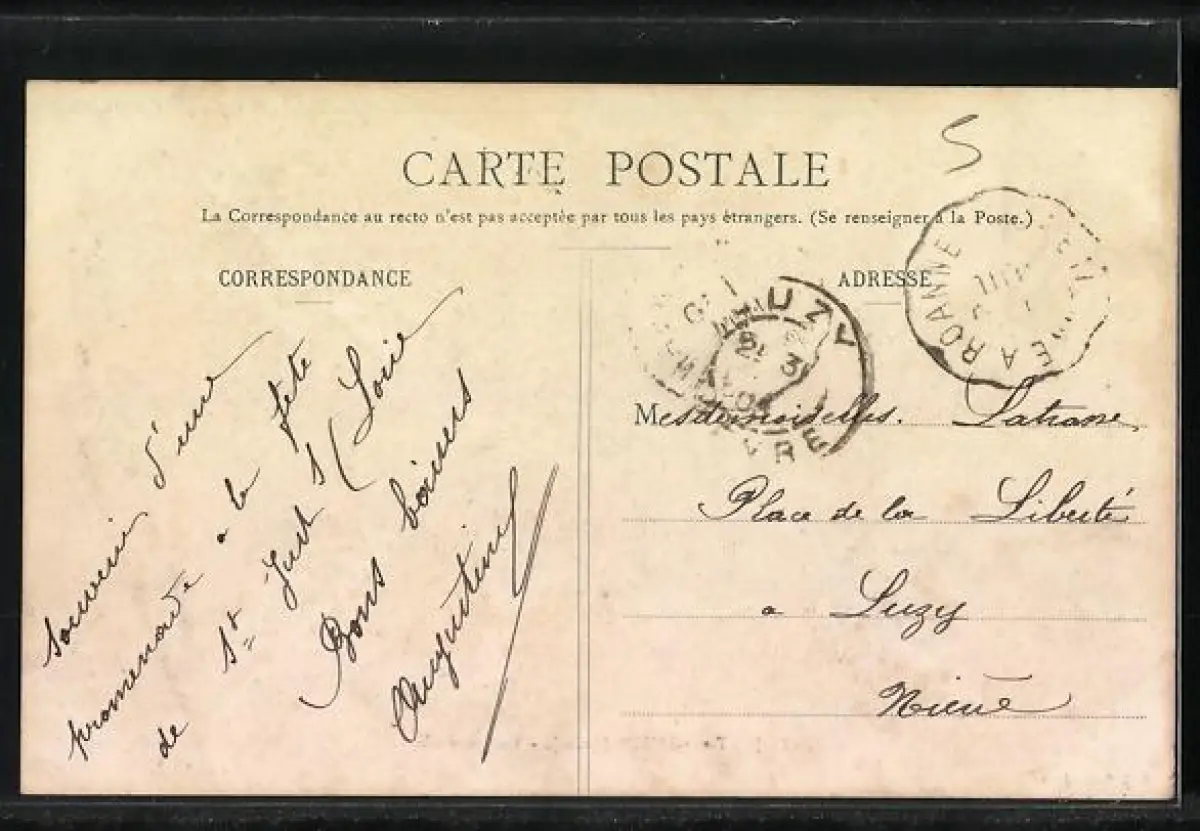 CARTE POSTALE
La Correspondance au recto n'est pas acceptée par tous les pays étrangers. (Se renseigner à la Poste.)
CORRESPONDANCE
souvenir d'une
promenade à la fête
de St Just s/Loire
Bons baisers
Augustine
S
ADRESSE
A ROANNE
LUZY
3
Mesdemoiselles.
Place de la Liberté
a Luzy
Nièvre